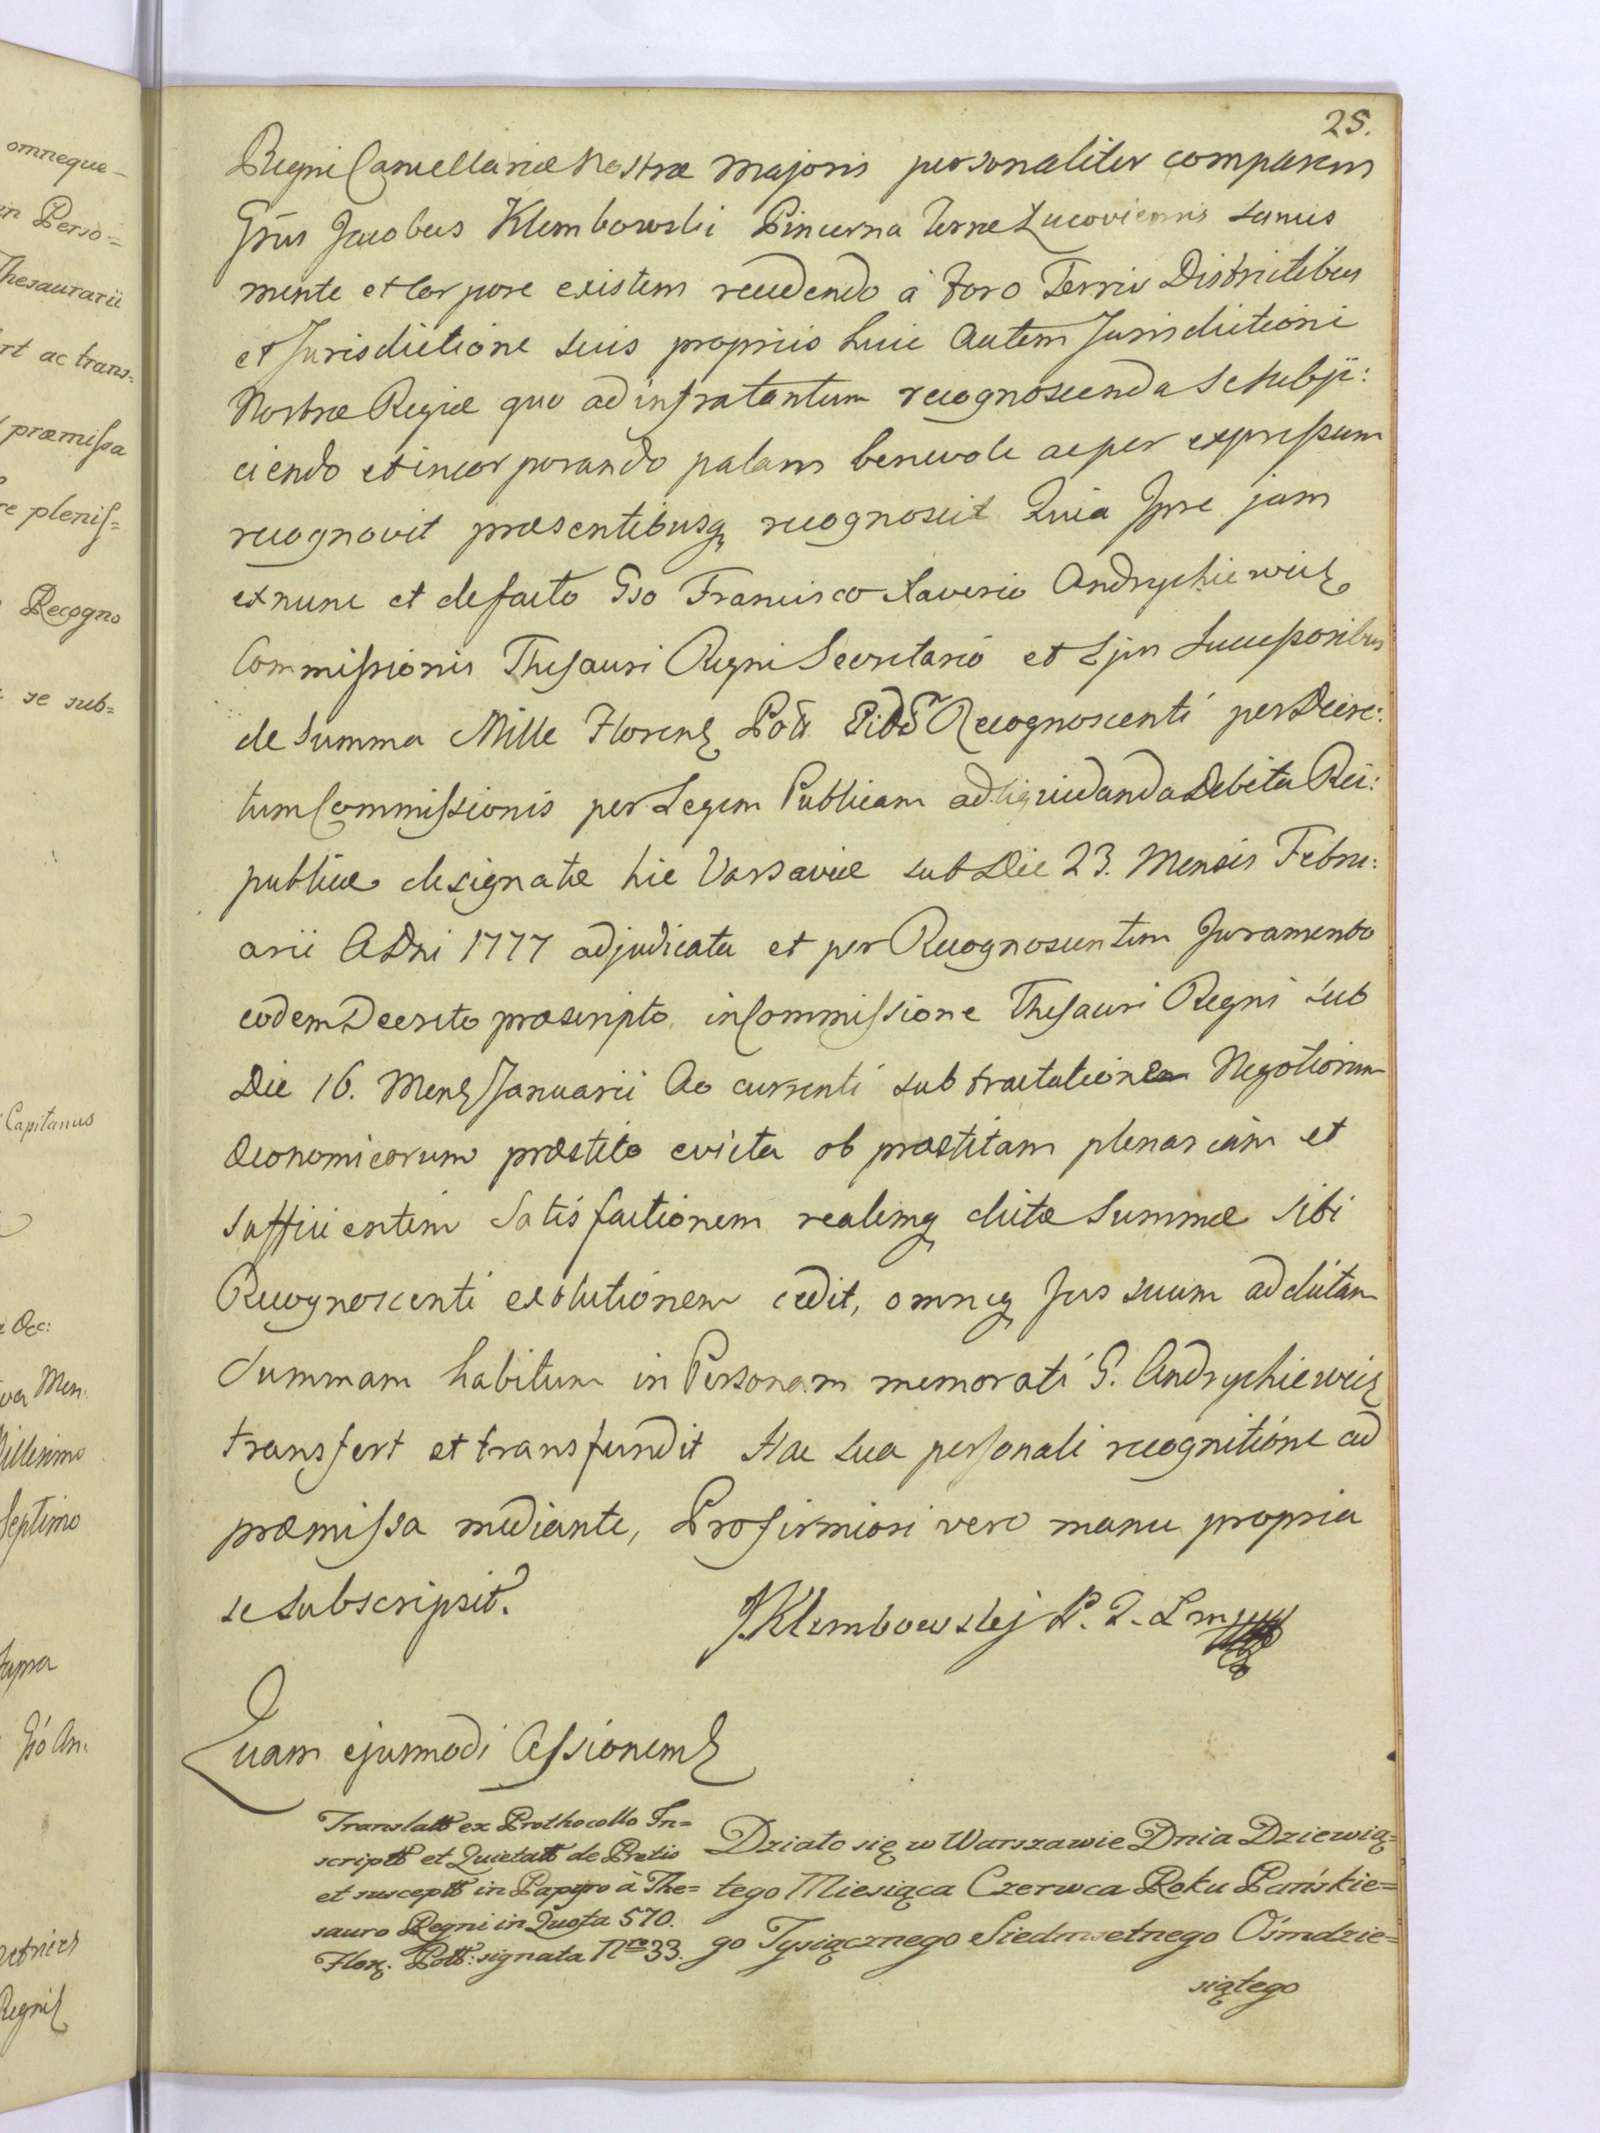 25.
Regni Cancellariæ Nostræ Majoris personaliter comparens
Grūs Jacobus Klembowski Pincerna Terræ Lucoviensis sanus
mente et Corpore existens recedendo à Foro Terris Districtibus
et Jurisdictione suis propriis huic Autem Jurisdictioni
Nostræ Regiæ quo ad infratantum recognoscenda se subji:
ciendo et incorporando palam benevole ac per expressum
recognovit præsentibusq recognoscit Quia Ipse jam
ex nunc et de facto Gso Francisco Xaverio Andrychiewicz
Commissionis Thesauri Regni Secretario et Ejus Successoribus
de Summa Mille Floren Poll Recognoscenti per Decre:
tum Commissionis per Legem Publicam ad liquidanda Debita Rei:
publicæ designatæ hic Varsaviæ sub Die 23. Mensis Febru:
arii A Dni 1777 adjudicata et per Recognoscentem Juramento
eodem Decreto præscripto in Commissione Thesauri Regni sub
Die 16. Mens Januarii Ao currenti sub tractatione Negotiorum
Œconomicorum præstito evicta ob præstitam plenariam et
sufficientem Satisfactionem realemq dictæ Summæ sibi
Recognoscenti exolutionem cedit, omneq Jus suum ad dictam
Summam habitum in Personam memorati G. Andrychiewicz
transfert et transfundit Hac sua personali recognitione ad
præmissa mediante, Pro firmiori vero manu propria
se subscripsit.
JKlembowskj P. Z. Ł mpp
Quam ejusmodi Cessionem
Translatt ex Prothocollo In=
scriptt et Quietatt de Pretio
et susceptt in Papyro à The=
sauro Regni in Quota 570.
Flor. Poll: signata Nro 33.
Działo się w Warszawie Dnia Dziewią=
tego Miesiąca Czerwca Roku Pańskie=
go Tysiącznego Siedmsetnego Ośmdzie=
siątego
omneque
in Perso=
Thesaurarii
rt ac trans=
præmissa
re pleniss=
Recogno
se sub=
Capitanus
Occ:
va Men.
Millesimo
Septimo
supra
Gsó An.
Regni